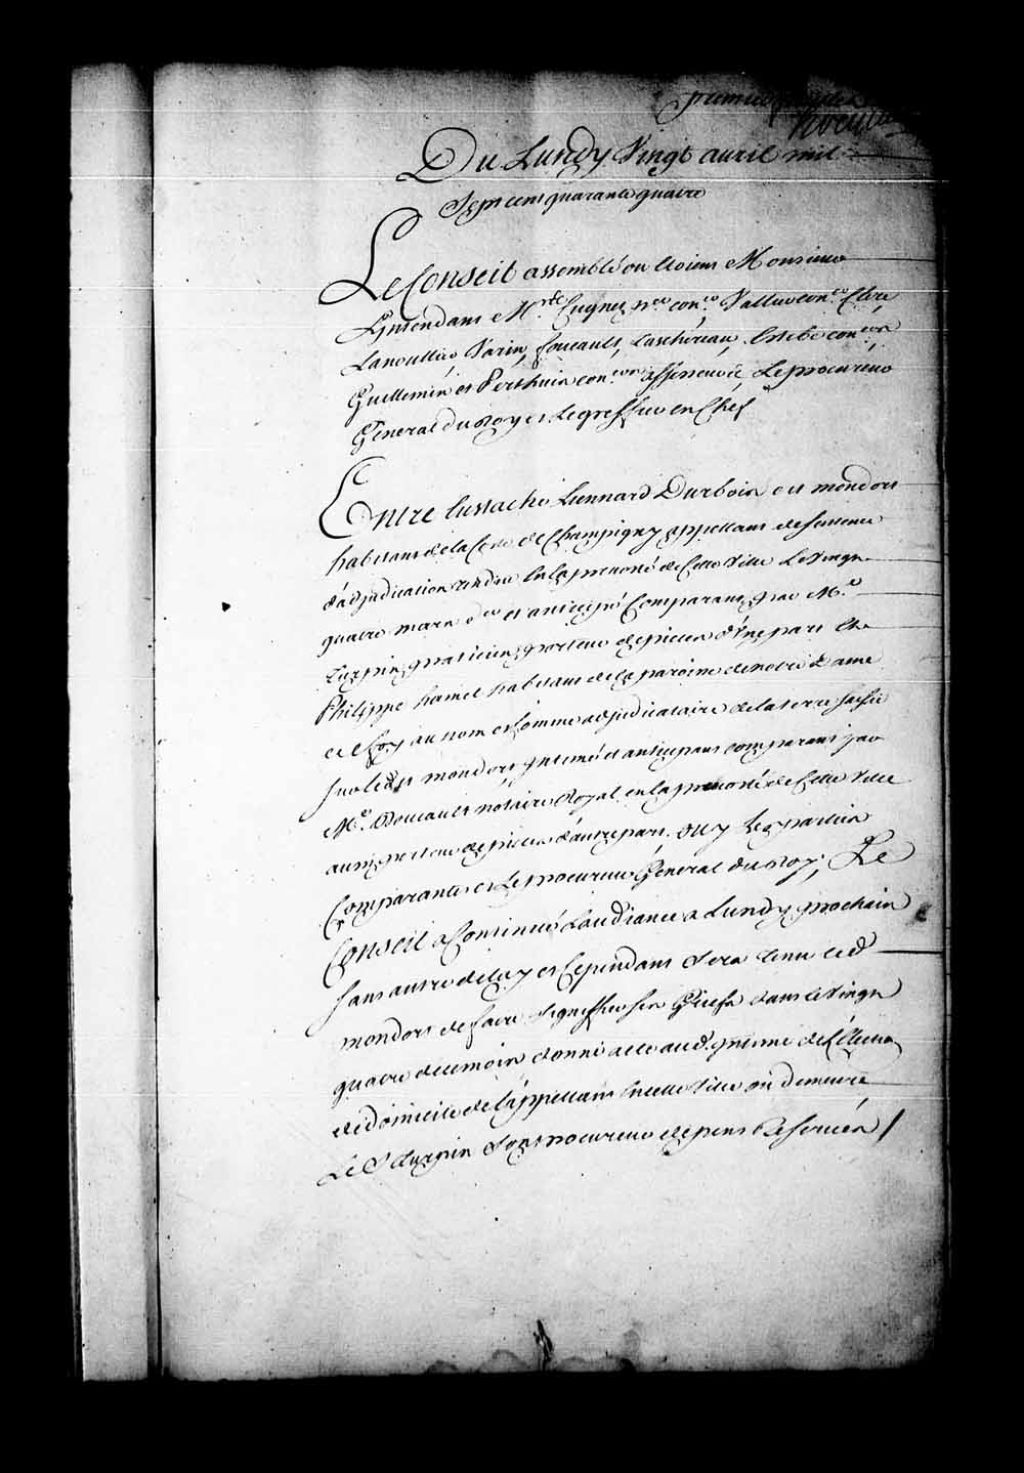 premier
Du Lundy Vingt avril mil
Sept cent quarante quatre
Le Conseil assemblé ou Etoient Monsieur
L'intendant Mrs. de Cugnet per. coner. Vallier coner. Clerc
Lanoullier, Varin, foucault, Taschereau, Estebe coners.
Guillemin et Perthuis coners. assesseurs, Le procureur
General du Roy et Le greffier en Chef
Entre Eustache Liennard Durbois dit mondor
habitant de la Coste de Champigny appellant de sentence
d'adjudication rendue En la prevosté de Cette Ville Le Vingt
quatre mars der. et anticipé Comparant par Me.
Turpin praticien porteur de pieces d'Une part Et
Philippe hamel habitant de la paroisse de notre dame
de foy au nom et Comme adjudicataire de la terre saisie
sur led. mondor, intimé et anticipant comparant par
Me. Boucault notaire Royal en la prevosté de Cette Ville
aussy porteur de pieces d'autre part. Ouy Les parties
Comparantes et Le procureur General du Roy; Le
Conseil a Continué L'audiance a Lundy prochain
sans autre delay et Cependant Sera tenu led.
mondor de faire signiffier ses Griefs dans le Vingt
quatre de ce mois donné acte aud. intimé de l'Election
de domicile de l'appellant En cette Ville où demeure
Le S. turpin Son procureur depens Reservés /